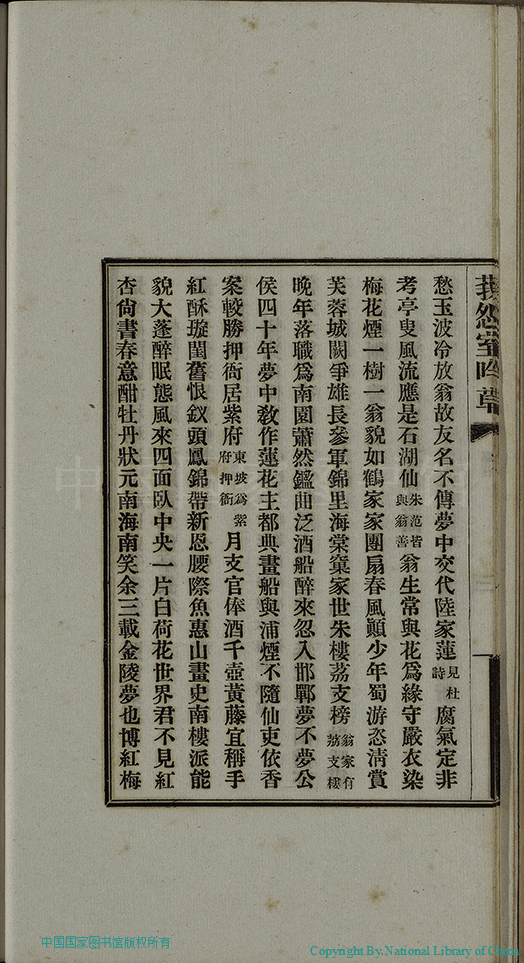 莪怨室吟草
愁玉波冷放翁故友名不傳夢中交代陸家蓮見杜詩腐氣定非
考亭叟風流應是石湖仙朱范皆與翁善翁生常與花爲緣守嚴衣染
梅花煙一樹一翁貌如鶴家家團扇春風顚少年蜀游恣淸賞
芙蓉城闕爭雄長參軍錦里海棠窠家世朱樓荔支榜翁家有荔支樓
晚年落職爲南園蕭然鑑曲泛酒船醉來忽入邯鄲夢不夢公
侯四十年夢中敎作蓮花主都典畫船與浦煙不隨仙吏依香
案較勝押衙居紫府東坡爲紫府押衙月支官俸酒千壺黃藤宜稱手
紅酥璇閨舊恨釵頭鳳錦帶新恩腰際魚惠山畫史南樓派能
貌大蓬醉眠態風來四面臥中央一片白荷花世界君不見紅
杏尙書春意酣牡丹狀元南海南笑余三載金陵夢也博紅梅
中国国家图书馆版权所有
Copyright By.National Library of China